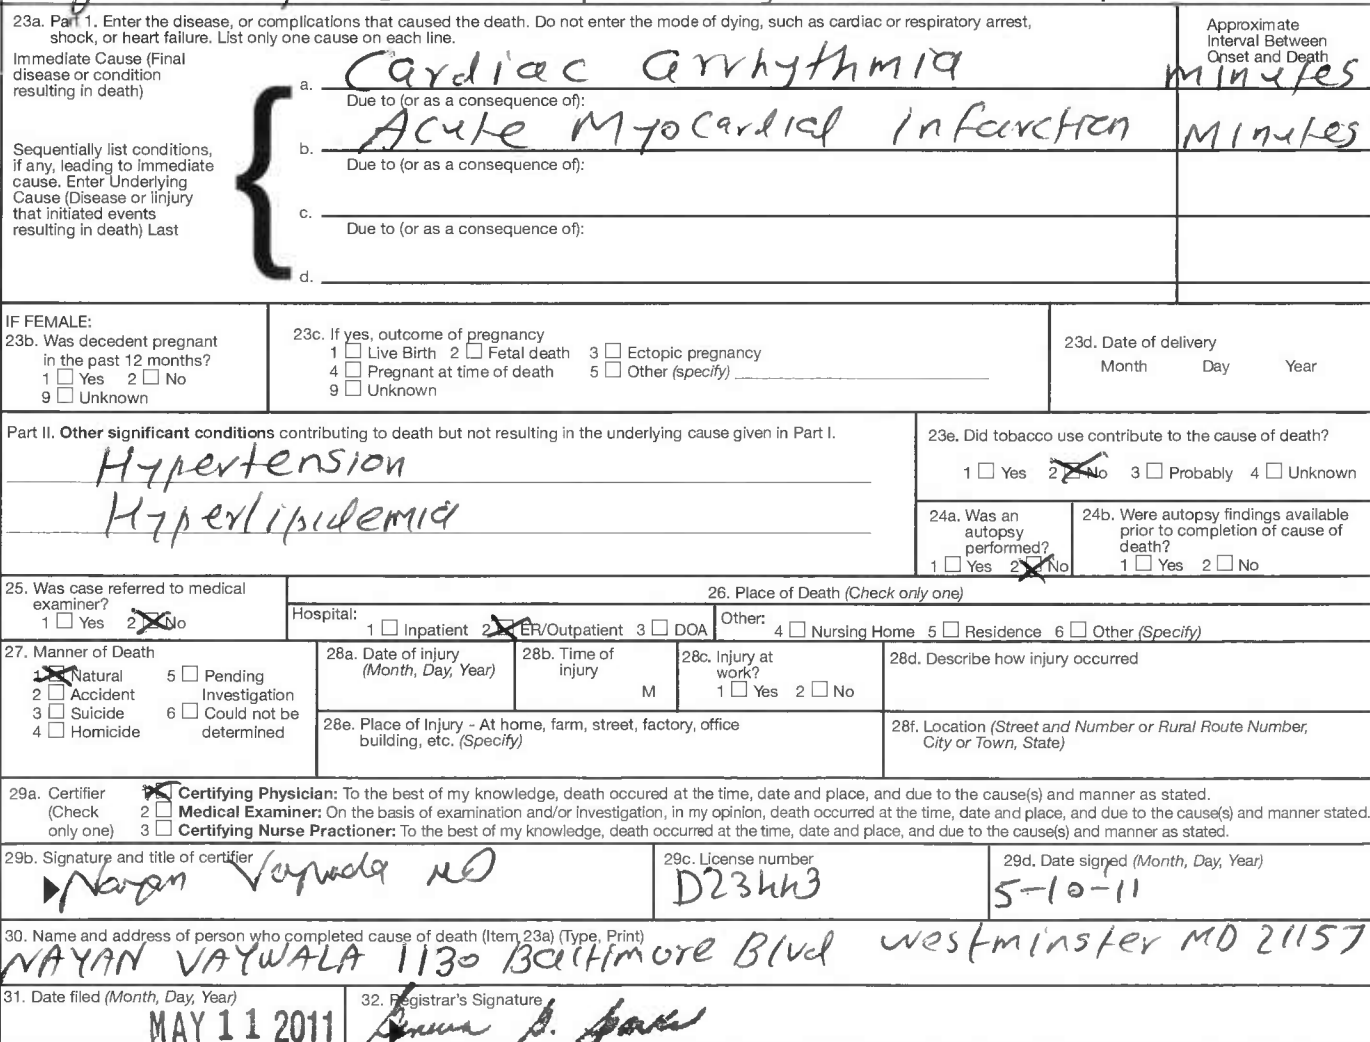 23a. Part 1. Enter the disease, or complications that caused the death. Do not enter the mode of dying, such as cardiac or respiratory arrest,
shock, or heart failure. List only one cause on each line.
Approximate
Interval Between
Onset and Death
Immediate Cause (Final
disease or condition
resulting in death)
a. Cardiac arrhythmia minutes
Due to (or as a consequence of):
b. Acute Myocardial infarction Minutes
Due to (or as a consequence of):
Sequentially list conditions,
if any, leading to immediate
cause. Enter Underlying
Cause (Disease or iinjury
that initiated events
resulting in death) Last
c.
Due to (or as a consequence of):
d.
IF FEMALE:
23b. Was decedent pregnant
in the past 12 months?
1 ☐ Yes 2 ☐ No
9 ☐ Unknown
23c. If yes, outcome of pregnancy
1 ☐ Live Birth 2 ☐ Fetal death 3 ☐ Ectopic pregnancy
4 ☐ Pregnant at time of death 5 ☐ Other (specify)
9 ☐ Unknown
23d. Date of delivery
Month Day Year
Part II. Other significant conditions contributing to death but not resulting in the underlying cause given in Part I.
Hypertension
Hyperlipidemia
23e. Did tobacco use contribute to the cause of death?
1 ☐ Yes 2 ☒ No 3 ☐ Probably 4 ☐ Unknown
24a. Was an
autopsy
performed?
1 ☐ Yes 2 ☒ No
24b. Were autopsy findings available
prior to completion of cause of
death?
1 ☐ Yes 2 ☐ No
25. Was case referred to medical
examiner?
1 ☐ Yes 2 ☒ No
26. Place of Death (Check only one)
Hospital:
1 ☐ Inpatient 2 ☒ ER/Outpatient 3 ☐ DOA
Other:
4 ☐ Nursing Home 5 ☐ Residence 6 ☐ Other (Specify)
27. Manner of Death
1 ☒ Natural 5 ☐ Pending
2 ☐ Accident Investigation
3 ☐ Suicide 6 ☐ Could not be
4 ☐ Homicide determined
28a. Date of injury
(Month, Day, Year)
28b. Time of
injury
M
28c. Injury at
work?
1 ☐ Yes 2 ☐ No
28d. Describe how injury occurred
28e. Place of Injury - At home, farm, street, factory, office
building, etc. (Specify)
28f. Location (Street and Number or Rural Route Number,
City or Town, State)
29a. Certifier
(Check
only one)
1 ☒ Certifying Physician: To the best of my knowledge, death occured at the time, date and place, and due to the cause(s) and manner as stated.
2 ☐ Medical Examiner: On the basis of examination and/or investigation, in my opinion, death occurred at the time, date and place, and due to the cause(s) and manner stated.
3 ☐ Certifying Nurse Practioner: To the best of my knowledge, death occurred at the time, date and place, and due to the cause(s) and manner as stated.
29b. Signature and title of certifier
Nayan MD
29c. License number
D23443
29d. Date signed (Month, Day, Year)
5-10-11
30. Name and address of person who completed cause of death (Item 23a) (Type, Print)
NAYAN VAYWALA 1130 Baltimore Blvd Westminster MD 21157
31. Date filed (Month, Day, Year)
MAY 11 2011
32. Registrar's Signature